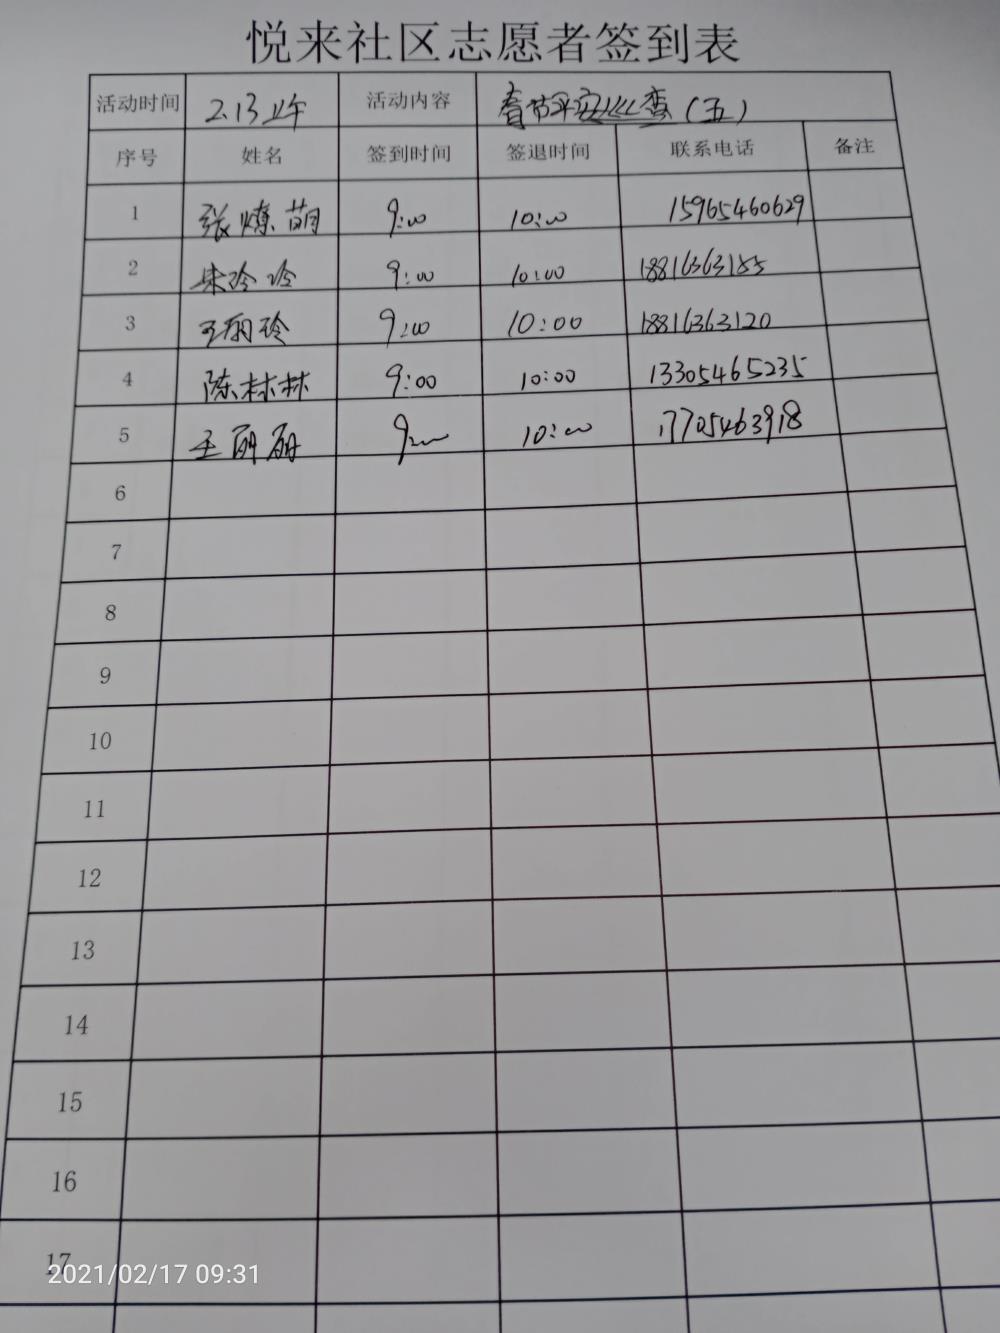 悦来社区志愿者签到表
活动时间 2.13上午 活动内容 春节平安巡查(五)
序号 姓名 签到时间 签退时间 联系电话 备注
1 张燎萌 9:00 10:00 15965460629
2 朱玲玲 9:00 10:00 18816363185
3 王丽玲 9:00 10:00 18816363120
4 陈林林 9:00 10:00 13305465235
5 王丽丽 9:00 10:00 17705463918
6
7
8
9
10
11
12
13
14
15
16
17
2021/02/17 09:31